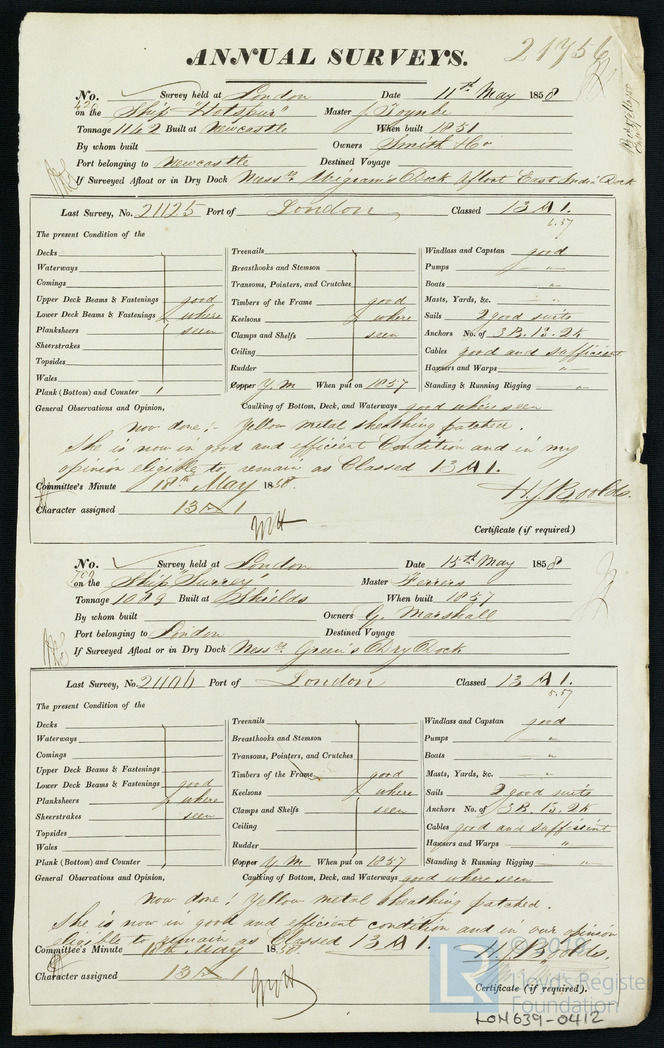 21756
ANNUAL SURVEYS.
No. Survey held at London Date 11th May 1858
on the Ship "Hotspur" Master J Toynbe
Tonnage 1142 Built at Newcastle When built 1851
By whom built Owners Smith & Co
Port belonging to Newcastle Destined Voyage
If Surveyed Afloat or in Dry Dock Messrs. Wigram's Dock Afloat East India Dock
Last Survey, No. 21125 Port of London Classed 13 A 1.
6.57
The present Condition of the
Decks
Waterways
Comings
Upper Deck Beams & Fastenings good
Lower Deck Beams & Fastenings where
Planksheers seen
Sheerstrakes
Topsides
Wales
Plank (Bottom) and Counter
Treenails
Breasthooks and Stemson
Transoms, Pointers, and Crutches
Timbers of the Frame good
Keelsons where
Clamps and Shelfs seen
Ceiling
Rudder
Copper Y.M When put on 1857
Windlass and Capstan good
Pumps "
Boats "
Masts, Yards, &c. "
Sails 2 good suits
Anchors No. of 3B. 1S. 2K
Cables good and sufficient
Hawsers and Warps "
Standing & Running Rigging "
General Observations and Opinion, Caulking of Bottom, Deck, and Waterways good where seen
Now done:- Yellow metal sheathing patched.
She is now in good and efficient Condition and in my
opinion eligible to remain as Classed 13 A 1.
Committee's Minute 18th May 1858.
Character assigned 13 A 1
H.J. Boolds.
Certificate (if required)
No. Survey held at London Date 15th May 1858
on the Ship "Surrey" Master Ferrers
Tonnage 1089 Built at Shields When built 1857
By whom built Owners G. Marshall
Port belonging to London Destined Voyage
If Surveyed Afloat or in Dry Dock Messrs. Green's Dry Dock
Last Survey, No. Port of London Classed 13 A 1.
5.57
The present Condition of the
Decks
Waterways
Comings
Upper Deck Beams & Fastenings
Lower Deck Beams & Fastenings good
Planksheers where
Sheerstrakes seen
Topsides
Wales
Plank (Bottom) and Counter
Treenails
Breasthooks and Stemson
Transoms, Pointers, and Crutches
Timbers of the Frame good
Keelsons where
Clamps and Shelfs seen
Ceiling
Rudder
Copper Y.M When put on 1857
Windlass and Capstan good
Pumps "
Boats "
Masts, Yards, &c. "
Sails 2 good suits
Anchors No. of 3B. 1S. 2K
Cables good and sufficient
Hawsers and Warps "
Standing & Running Rigging "
General Observations and Opinion, Caulking of Bottom, Deck, and Waterways good where seen
Now done: Yellow metal sheathing patched.
She is now in good and efficient condition and in our opinion
eligible to remain as Classed 13 A 1.
Committee's Minute 18th May 1858.
Character assigned 13 A 1
H.J. Boolds.
Certificate (if required).
© 2019
LR
Lloyd's Register
Foundation
LON639-0412